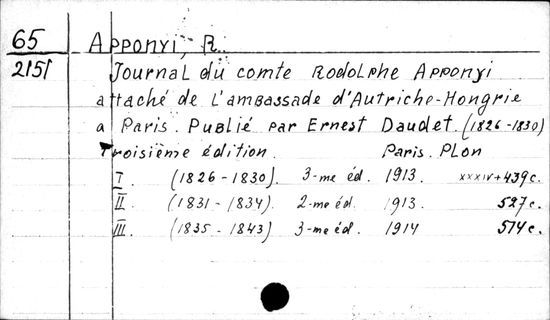 65 Apponyi, R.
2151 Journal du comte Rodolphe Apponyi
attaché de l'ambassade d'Autriche-Hongrie
a Paris. Publié par Ernest Daudet. (1826-1830)
Troisième édition. Paris. Plon
I. (1826-1830). 3-me éd. 1913. XXXIV+439c.
II. (1831-1834). 2-me éd. 1913. 527c.
III. (1835-1843) 3-me éd. 1914 514c.